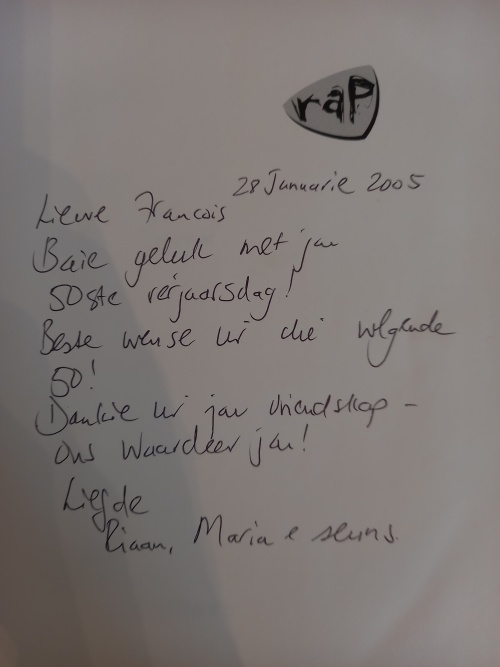 rap
28 Januarie 2005
Liewe Francois
Baie geluk met jou
50ste verjaarsdag!
Beste wense vir die volgende
50!
Dankie vir jou vriendskap -
ons waardeer jou!
Liefde
Riaan, Maria e seuns.